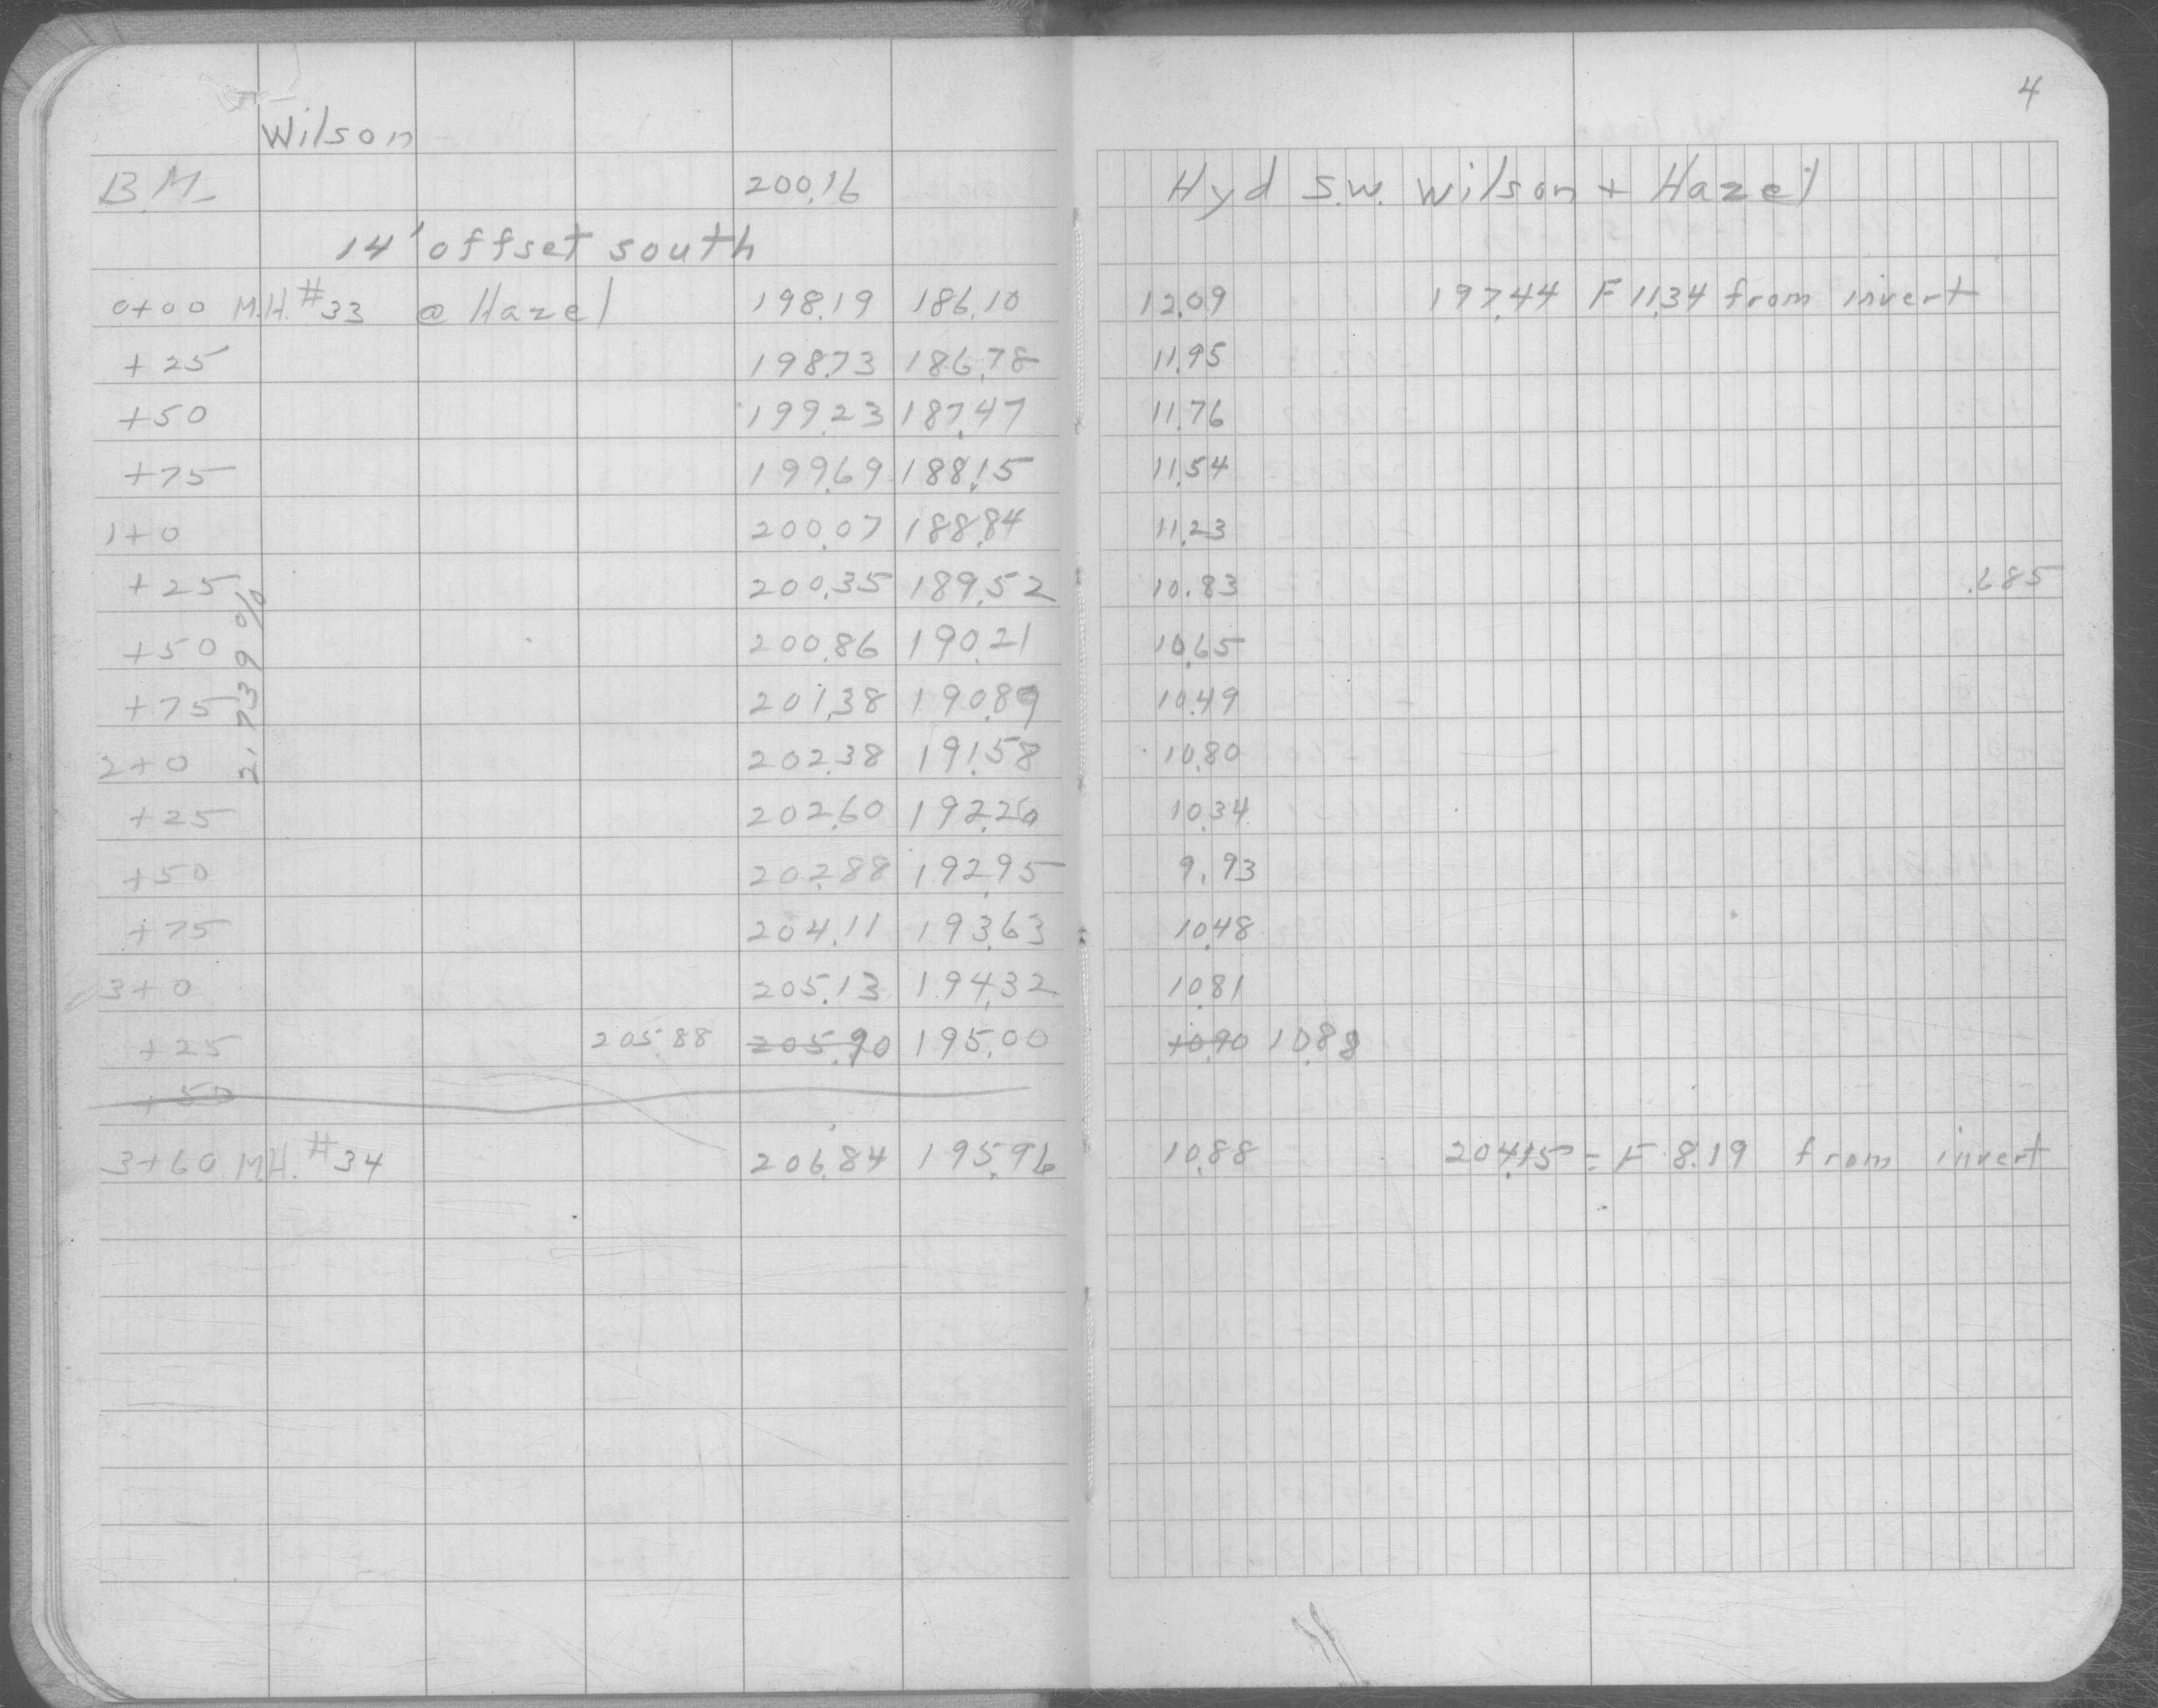 4
Wilson
B.M. 200.16 Hyd S.W. Wilson + Hazel
14' offset south
0+00 M.H. #33 @ Hazel 198.19 186.10 12.09 197.44 F 11.34 from invert
+25 198.73 186.78 11.95
+50 199.23 187.47 11.76
+75 199.69 188.15 11.54
1+0 200.07 188.84 11.23
+25 200.35 189.52 10.83 .685
+50 200.86 190.21 10.65
+75 201.38 190.89 10.49
2+0 202.38 191.58 10.80
2.739%
+25 202.60 192.26 10.34
+50 202.88 192.95 9.93
+75 204.11 193.63 10.48
3+0 205.13 194.32 10.81
+25 205.88 205.90 195.00 10.90 10.88
+50
3+60 M.H. #34 206.84 195.96 10.88 204.15 = F 8.19 from invert